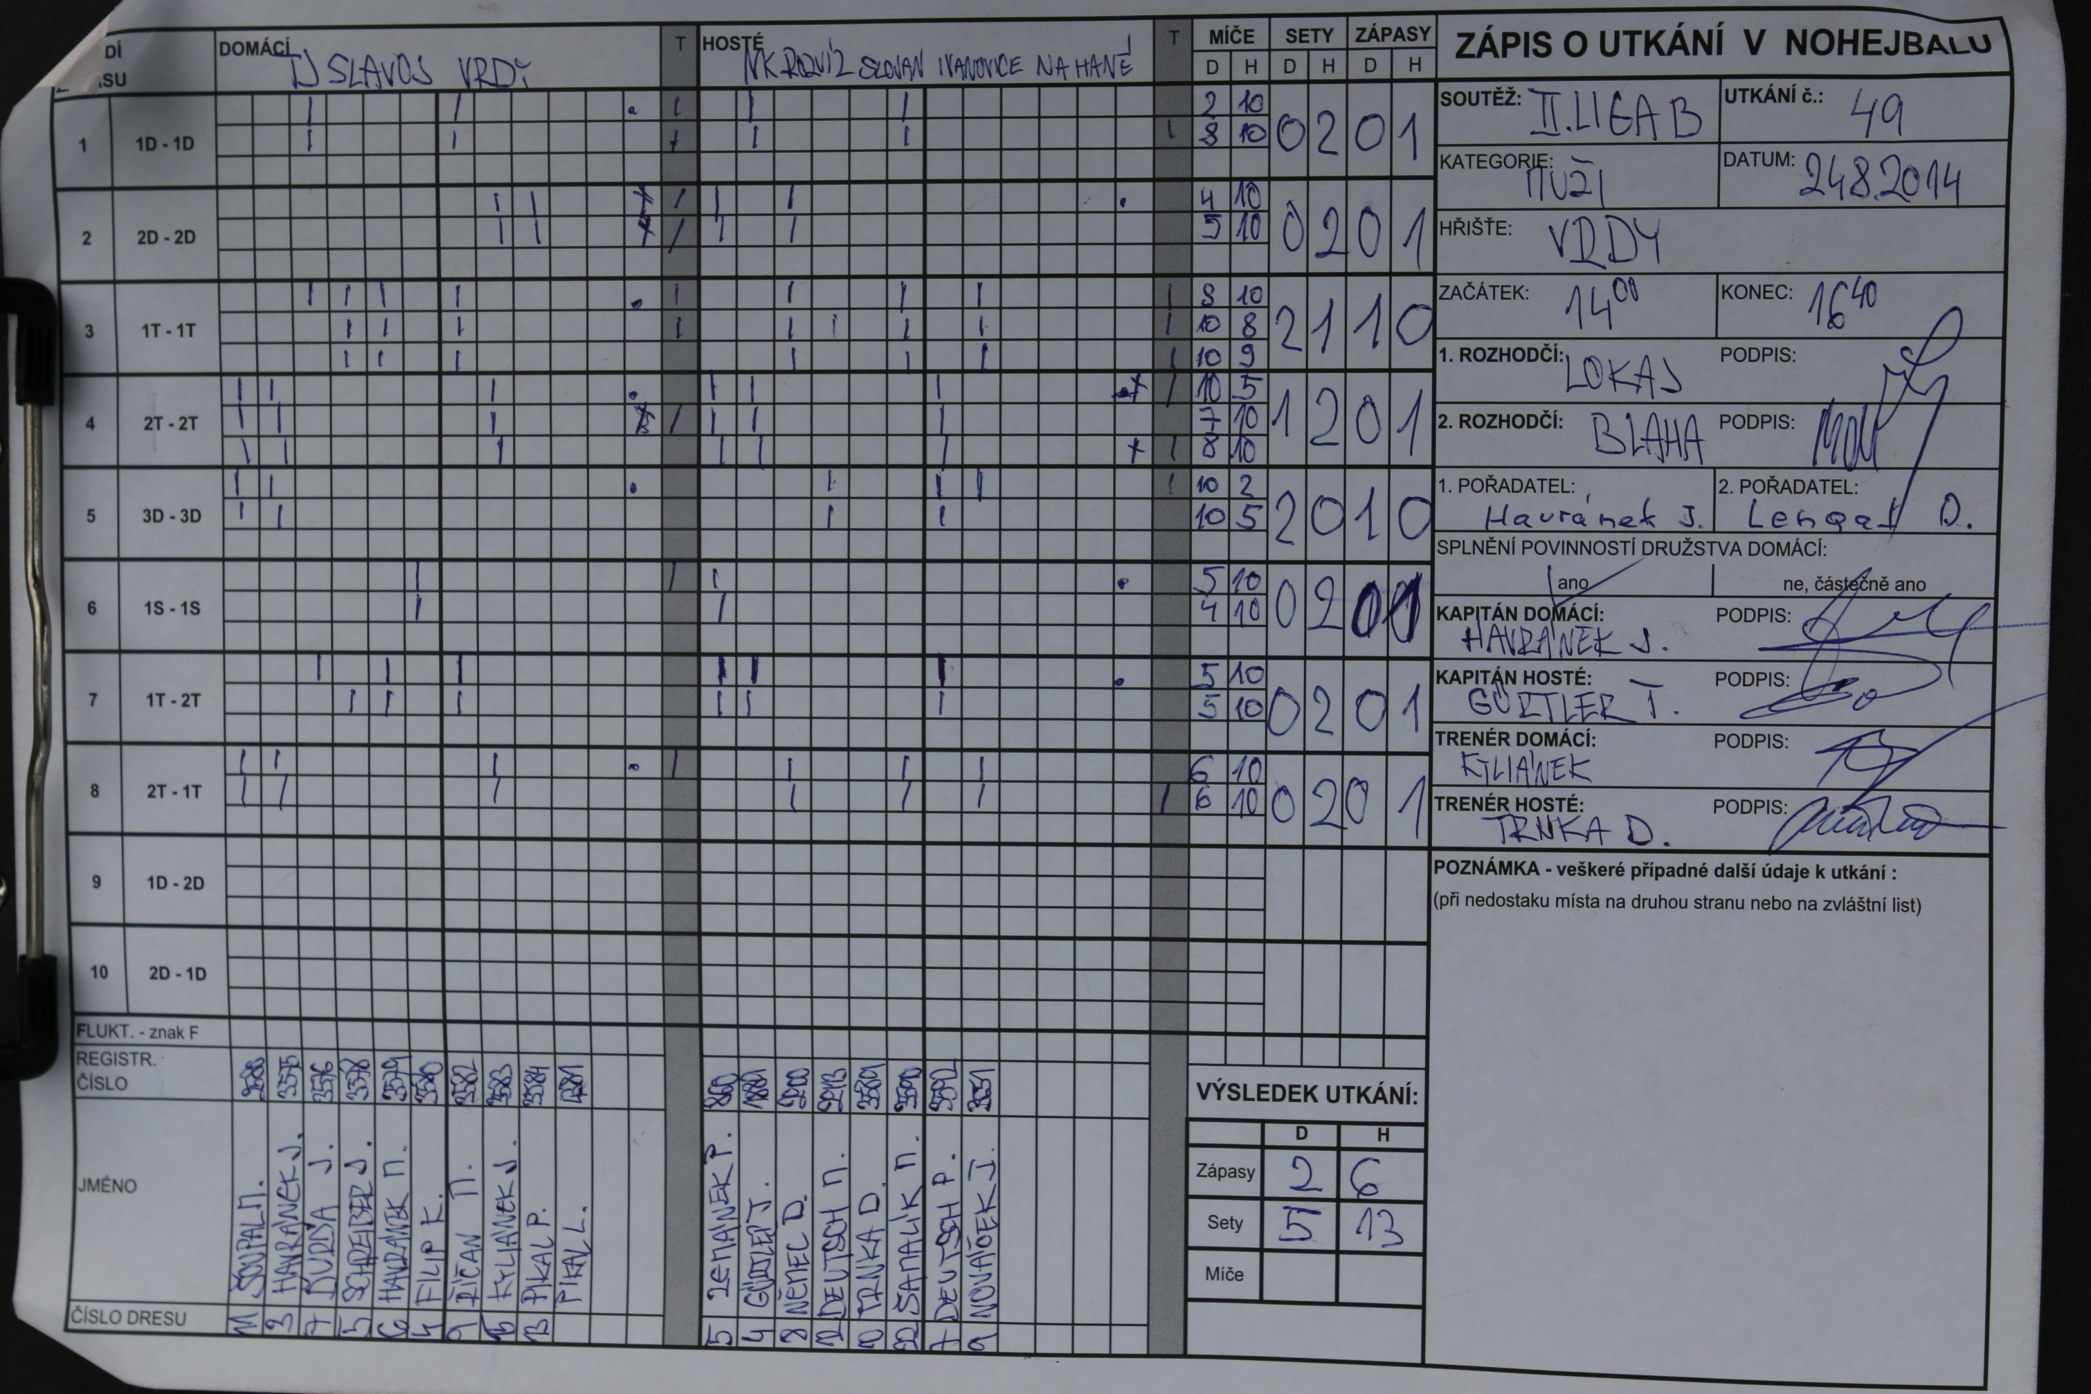 DOMÁCÍ TJ SLAVOJ VRDY T HOSTÉ NK ROZVIZ SLOVAN IVANOVICE NA HANÉ T MÍČE SETY ZÁPASY
D H D H D H
ZÁPIS O UTKÁNÍ V NOHEJBALU
SOUTĚŽ: II.LIGA B UTKÁNÍ č.: 49
KATEGORIE: MUŽI DATUM: 24.8.2014
HŘIŠTE: VRDY
ZAČÁTEK: 14 00 KONEC: 16 40
1. ROZHODČÍ: LOKAJ PODPIS:
2. ROZHODČÍ: BLAHA PODPIS:
1. POŘADATEL: Havránek J. 2. POŘADATEL: Lengál D.
SPLNĚNÍ POVINNOSTÍ DRUŽSTVA DOMÁCÍ:
ano ne, částečně ano
KAPITÁN DOMÁCÍ: HAVRÁNEK J. PODPIS:
KAPITÁN HOSTÉ: GÜRTLER T. PODPIS:
TRENÉR DOMÁCÍ: KYLIÁNEK PODPIS:
TRENÉR HOSTÉ: TRNKA D. PODPIS:
POZNÁMKA - veškeré případné další údaje k utkání :
(při nedostaku místa na druhou stranu nebo na zvláštní list)
1 1D - 1D 2 10 0 2 0 1
8 10
2 2D - 2D 4 10 0 2 0 1
5 10
3 1T - 1T 8 10 2 1 1 0
10 8
10 9
4 2T - 2T 10 5 1 2 0 1
7 10
8 10
5 3D - 3D 10 2 2 0 1 0
10 5
6 1S - 1S 5 10 0 2 0 1
4 10
7 1T - 2T 5 10 0 2 0 1
5 10
8 2T - 1T 6 10 0 2 0 1
6 10
9 1D - 2D
10 2D - 1D
FLUKT. - znak F
REGISTR.
ČÍSLO
3575 3576 3578 3579 3580 3582 3583 3584
JMÉNO
ŠOUPAL M. HAVRÁNEK J. BURDA J. SCHREIBER J. HAVRÁNEK M. FILIP K. ŘÍČAN M. KYLIÁNEK J. PIKAL P. PIKAL L.
ZEMÁNEK P. GÜRTLER T. NĚMEC D. DEUTSCH M. TRNKA D. SAMALÍK M. DEUTSCH P. NOVÁČEK J.
ČÍSLO DRESU
11 3 7 5 6 4 9 16 13
5 4 8 12 10 22 7 9
VÝSLEDEK UTKÁNÍ:
D H
Zápasy 2 6
Sety 5 13
Míče